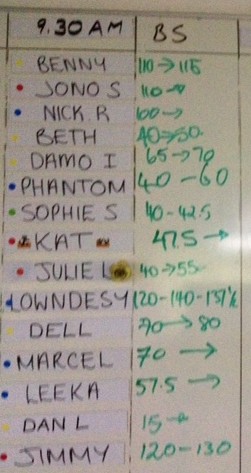 9.30 AM BS
BENNY 110→115
JONO S 110→
NICK.R 100→
BETH 40→50
DAMO I 65→70
PHANTOM 40-60
SOPHIE S 40-42.5
KAT 47.5→
JULIE L 40→55
LOWNDESY 120-140-137½
DELL 70→80
MARCEL 70→
LEEKA 57.5→
DAN L 15→
JIMMY 120-130